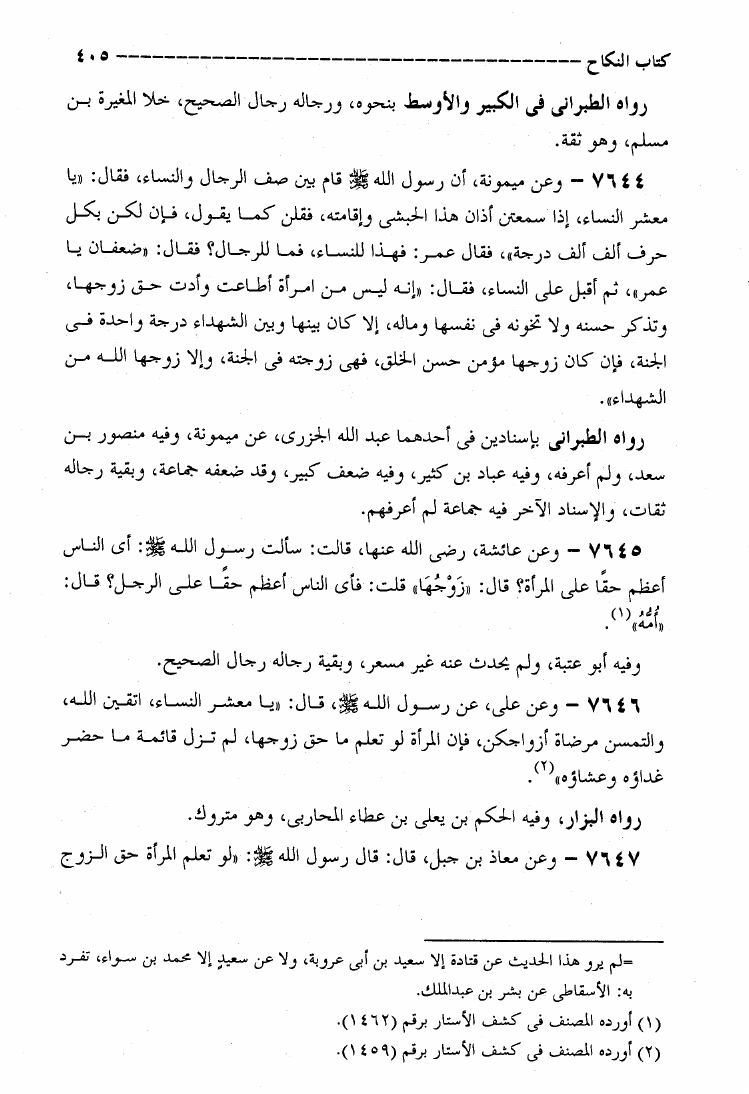 كتاب النكاح ------------------------------------------------ ٤٠٥
رواه الطبرانى فى الكبير والأوسط بنحوه، ورجاله رجال الصحيح، خلا المغيرة بـن
مسلم، وهو ثقة.
٧٦٤٤ – وعن ميمونة، أن رسول الله ﷺ قام بين صف الرجال والنساء، فقال: «يا
معشر النساء، إذا سمعتن أذان هذا الحبشى وإقامته، فقلن كمـا يقول، فـإن لكـن بكـل
حرف ألف ألف درجة»، فقال عمـر: فهـذا للنسـاء، فمـا للرجـال؟ فقـال: «ضعفـان يـا
عمر»، ثم أقبل على النساء، فقـال: «إنـه ليـس مـن امـرأة أطـاعت وأدت حـق زوجهـا،
وتذكر حسنه ولا تخونه فى نفسها وماله، إلا كان بينها وبين الشهداء درجة واحدة فـى
الجنة، فإن كان زوجها مؤمن حسن الخلق، فهى زوجته فى الجنة، وإلا زوجها اللـه مـن
الشهداء».
رواه الطبرانى بإسنادين فى أحدهما عبد الله الجزرى، عن ميمونة، وفيه منصور بـن
سعد، ولم أعرفه، وفيه عباد بن كثير، وفيه ضعف كبير، وقد ضعفه جماعة، وبقية رجاله
ثقات، والإسناد الآخر فيه جماعة لم أعرفهم.
٧٦٤٥ – وعن عائشة، رضى الله عنها، قالت: سألت رسـول اللـه ﷺ: أى النـاس
أعظم حقًا على المرأة؟ قال: «زَوْجُهَا» قلت: فأى الناس أعظم حقًـا علـى الرجـل؟ قـال:
«أُمُّهُ»(١).
وفيه أبو عتبة، ولم يحدث عنه غير مسعر، وبقية رجاله رجال الصحيح.
٧٦٤٦ – وعن على، عن رسـول اللـه ﷺ، قـال: «يـا معشـر النساء، اتقـين اللـه،
والتمسن مرضاة أزواجكن، فإن المرأة لو تعلم ما حق زوجها، لم تـزل قائمـة مـا حضـر
غداؤه وعشاؤه»(٢).
رواه البزار، وفيه الحكم بن يعلى بن عطاء المحاربى، وهو متروك.
٧٦٤٧ – وعن معاذ بن جبل، قال: قال رسول الله ﷺ: «لو تعلم المرأة حق الـزوج
=لم يرو هذا الحديث عن قتادة إلا سعيد بن أبى عروبة، ولا عن سعيدٍ إلا محمد بن سـواء، تفـرد
به: الأسقاطى عن بشر بن عبدالملك.
(١) أورده المصنف فى كشف الأستار برقم (١٤٦٢).
(٢) أورده المصنف فى كشف الأستار برقم (١٤٥٩).